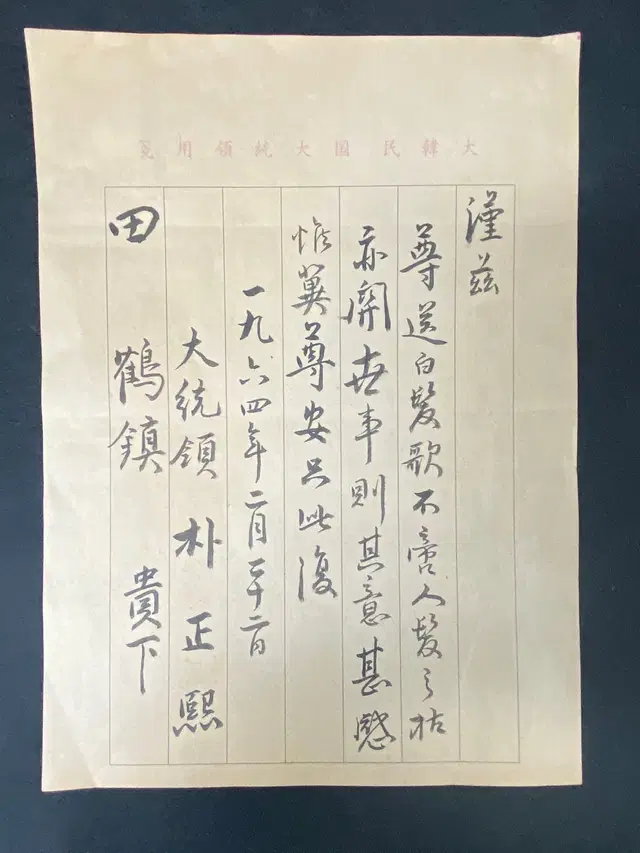 大韓民國大統領用箋
謹茲
尊送白髮歌不啻人髮之枯
亦關世事則其意甚感
惟冀尊安只此復
一九六四年二月二十二日
大統領 朴正熙
田 鶴鎮 貴下